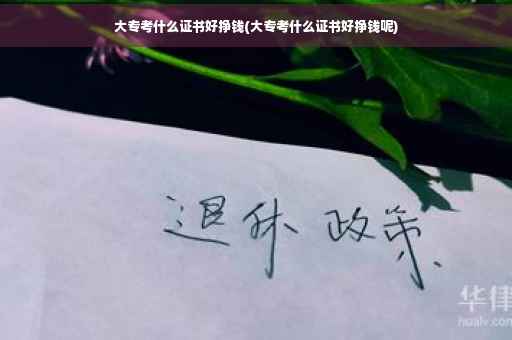 大专考什么证书好挣钱(大专考什么证书好挣钱呢)
退休 政策
华律
hualv.com